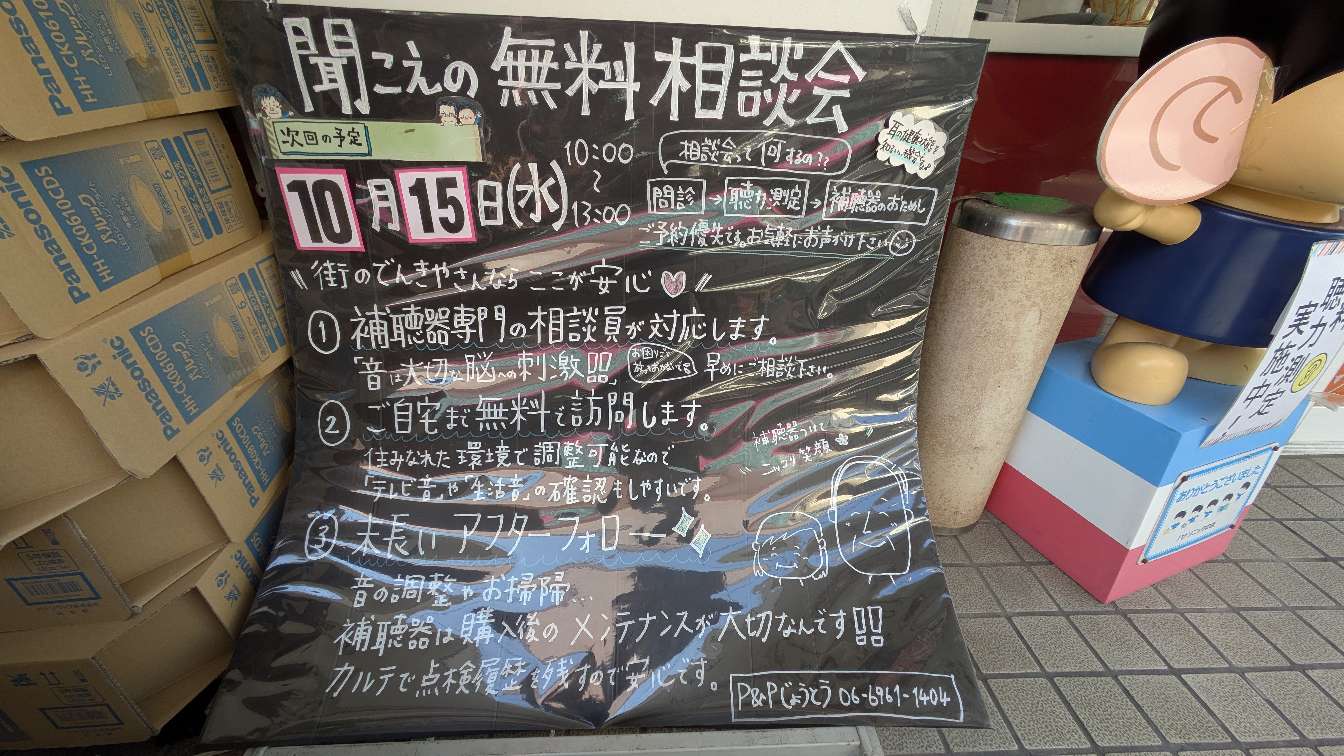 聞こえの無料相談会
次回の予定
10月15日(水)
10:00
~
13:00
相談会って何するの??
問診→聴力測定→補聴器のおためし
ご予約優先です。お気軽にお声がけ下さい
"街のでんきやさんならここが安心"
① 補聴器専門の相談員が対応します。
「音は大切な脳への刺激品」
早めにご相談下さい。
② ご自宅まで無料で訪問します。
住みなれた環境で調整可能なので
「テレビ音」や「生活音」の確認もしやすいです。
"補聴器つけて
にっこり笑顔"
③ 末長いアフターフォロー
音の調整やお掃除...
補聴器は購入後のメンテナンスが大切なんです!!
カルテで点検履歴を残すので安心です。
P&Pじょうとう 06-6961-1404
聴力測定
実施中!
ありがとうございました
Panasonic
HH-CK0610CDS
Panasonic
HH-CK0610CDS
Panasonic
HH-CK0610CDS
Panasonic
HH-CK0610CDS